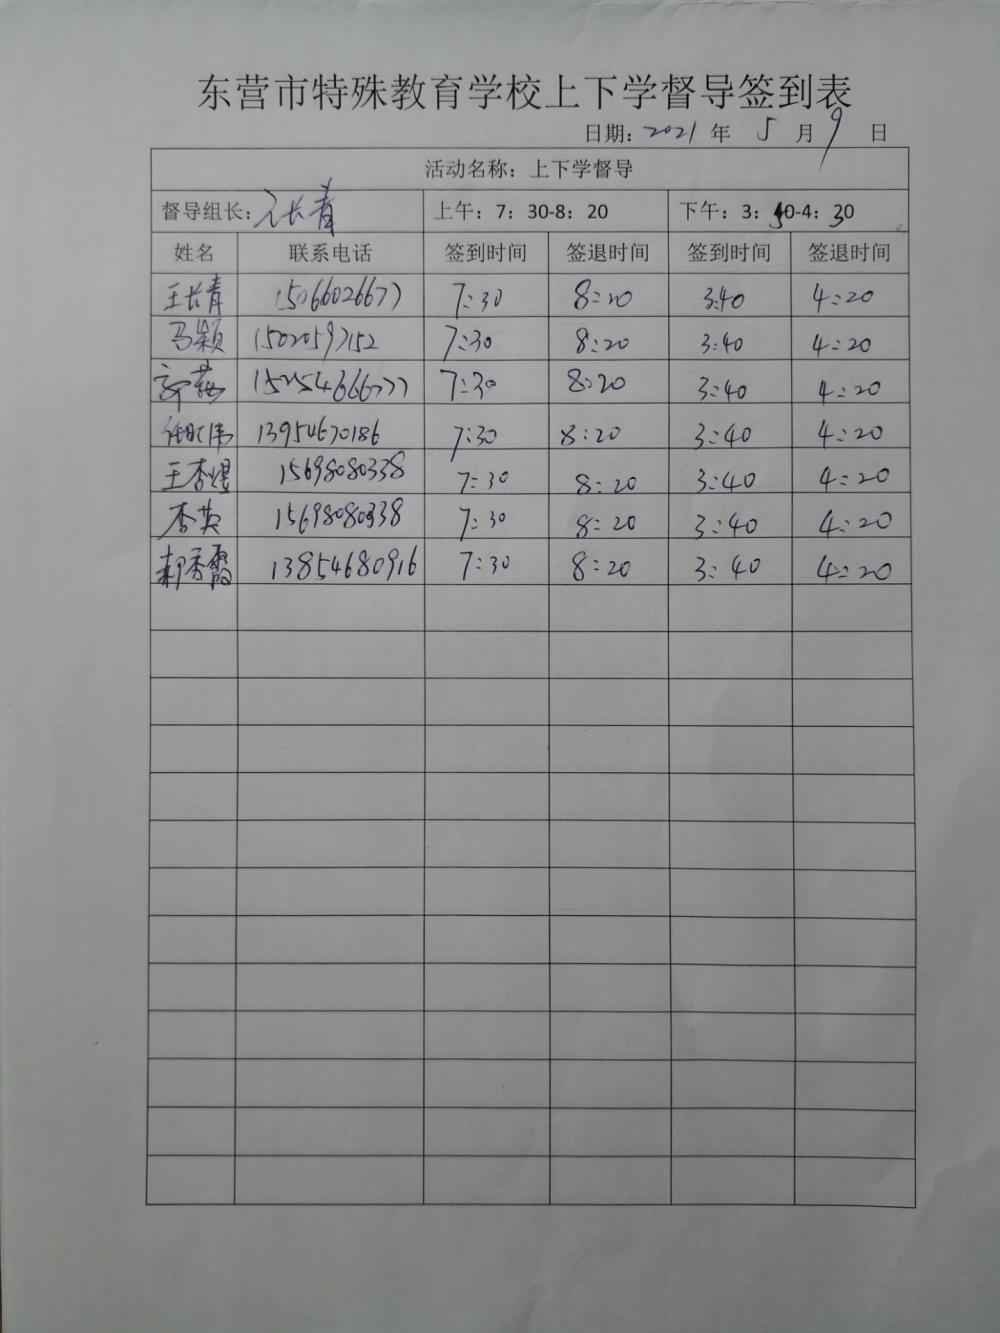 东营市特殊教育学校上下学督导签到表
日期: 2021 年 5 月 9 日
活动名称：上下学督导
督导组长: 王长青 上午：7：30-8：20 下午：3：50-4：30
姓名 联系电话 签到时间 签退时间 签到时间 签退时间
王长青 15066026677 7:30 8:20 3:40 4:20
马颖 15020597152 7:30 8:20 3:40 4:20
7:30 8:20 3:40 4:20
13954670186 7:30 8:20 3:40 4:20
王杏煜 15698080338 7:30 8:20 3:40 4:20
李英 15698080338 7:30 8:20 3:40 4:20
郝秀霞 13854680916 7:30 8:20 3:40 4:20